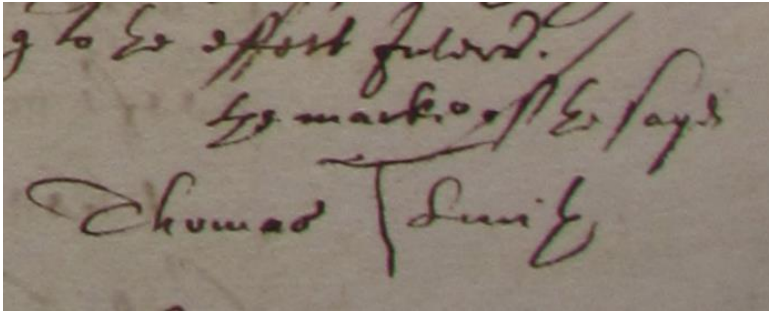 to he effect
the marke of he sayd
Thomas T Smith